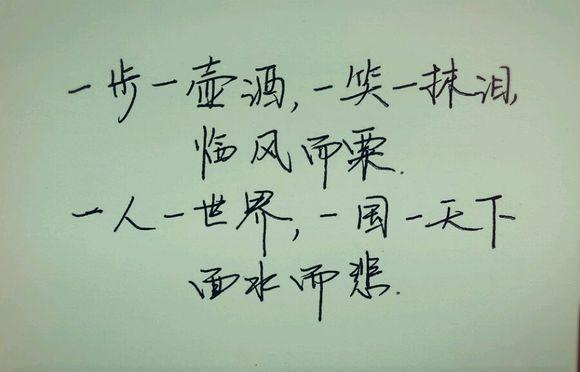 一步一壶酒，一笑一抹泪，
临风而粟.
一人一世界，一国一天下
面水而悲.